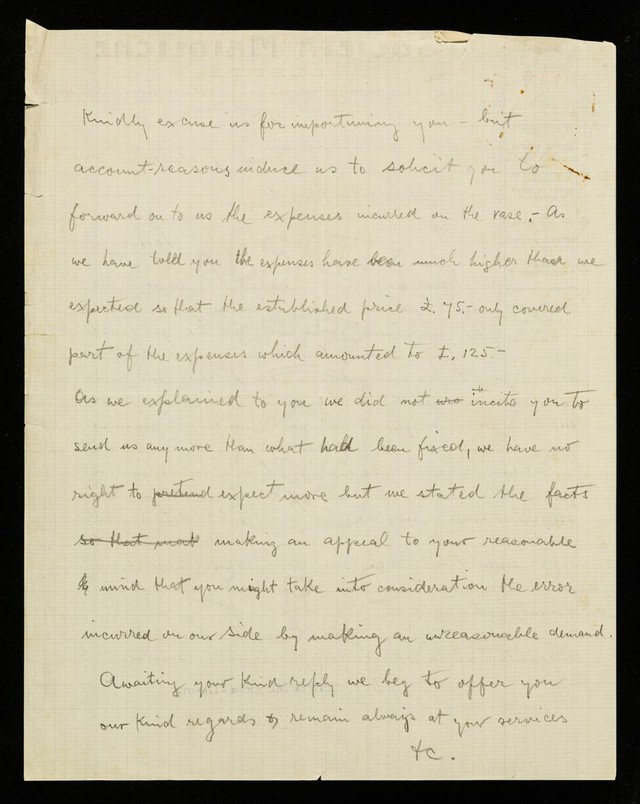 Kindly excuse us for importuning you - but
account-reasons induce us to solicit you to
forward on to us the expenses incurred on the vase.- As
we have told you the expenses have been much higher than we
expected so that the established price £.75.- only covered
part of the expenses which amounted to £.125.-
As we explained to you we did not to incite you to
send us any more than what had been fixed, we have no
right to pretend expect more but we stated the facts
so that making an appeal to your reasonable
mind that you might take into consideration the error
incurred on our side by making an unreasonable demand.
Awaiting your kind reply we beg to offer you
our kind regards & remain always at your services
&c.